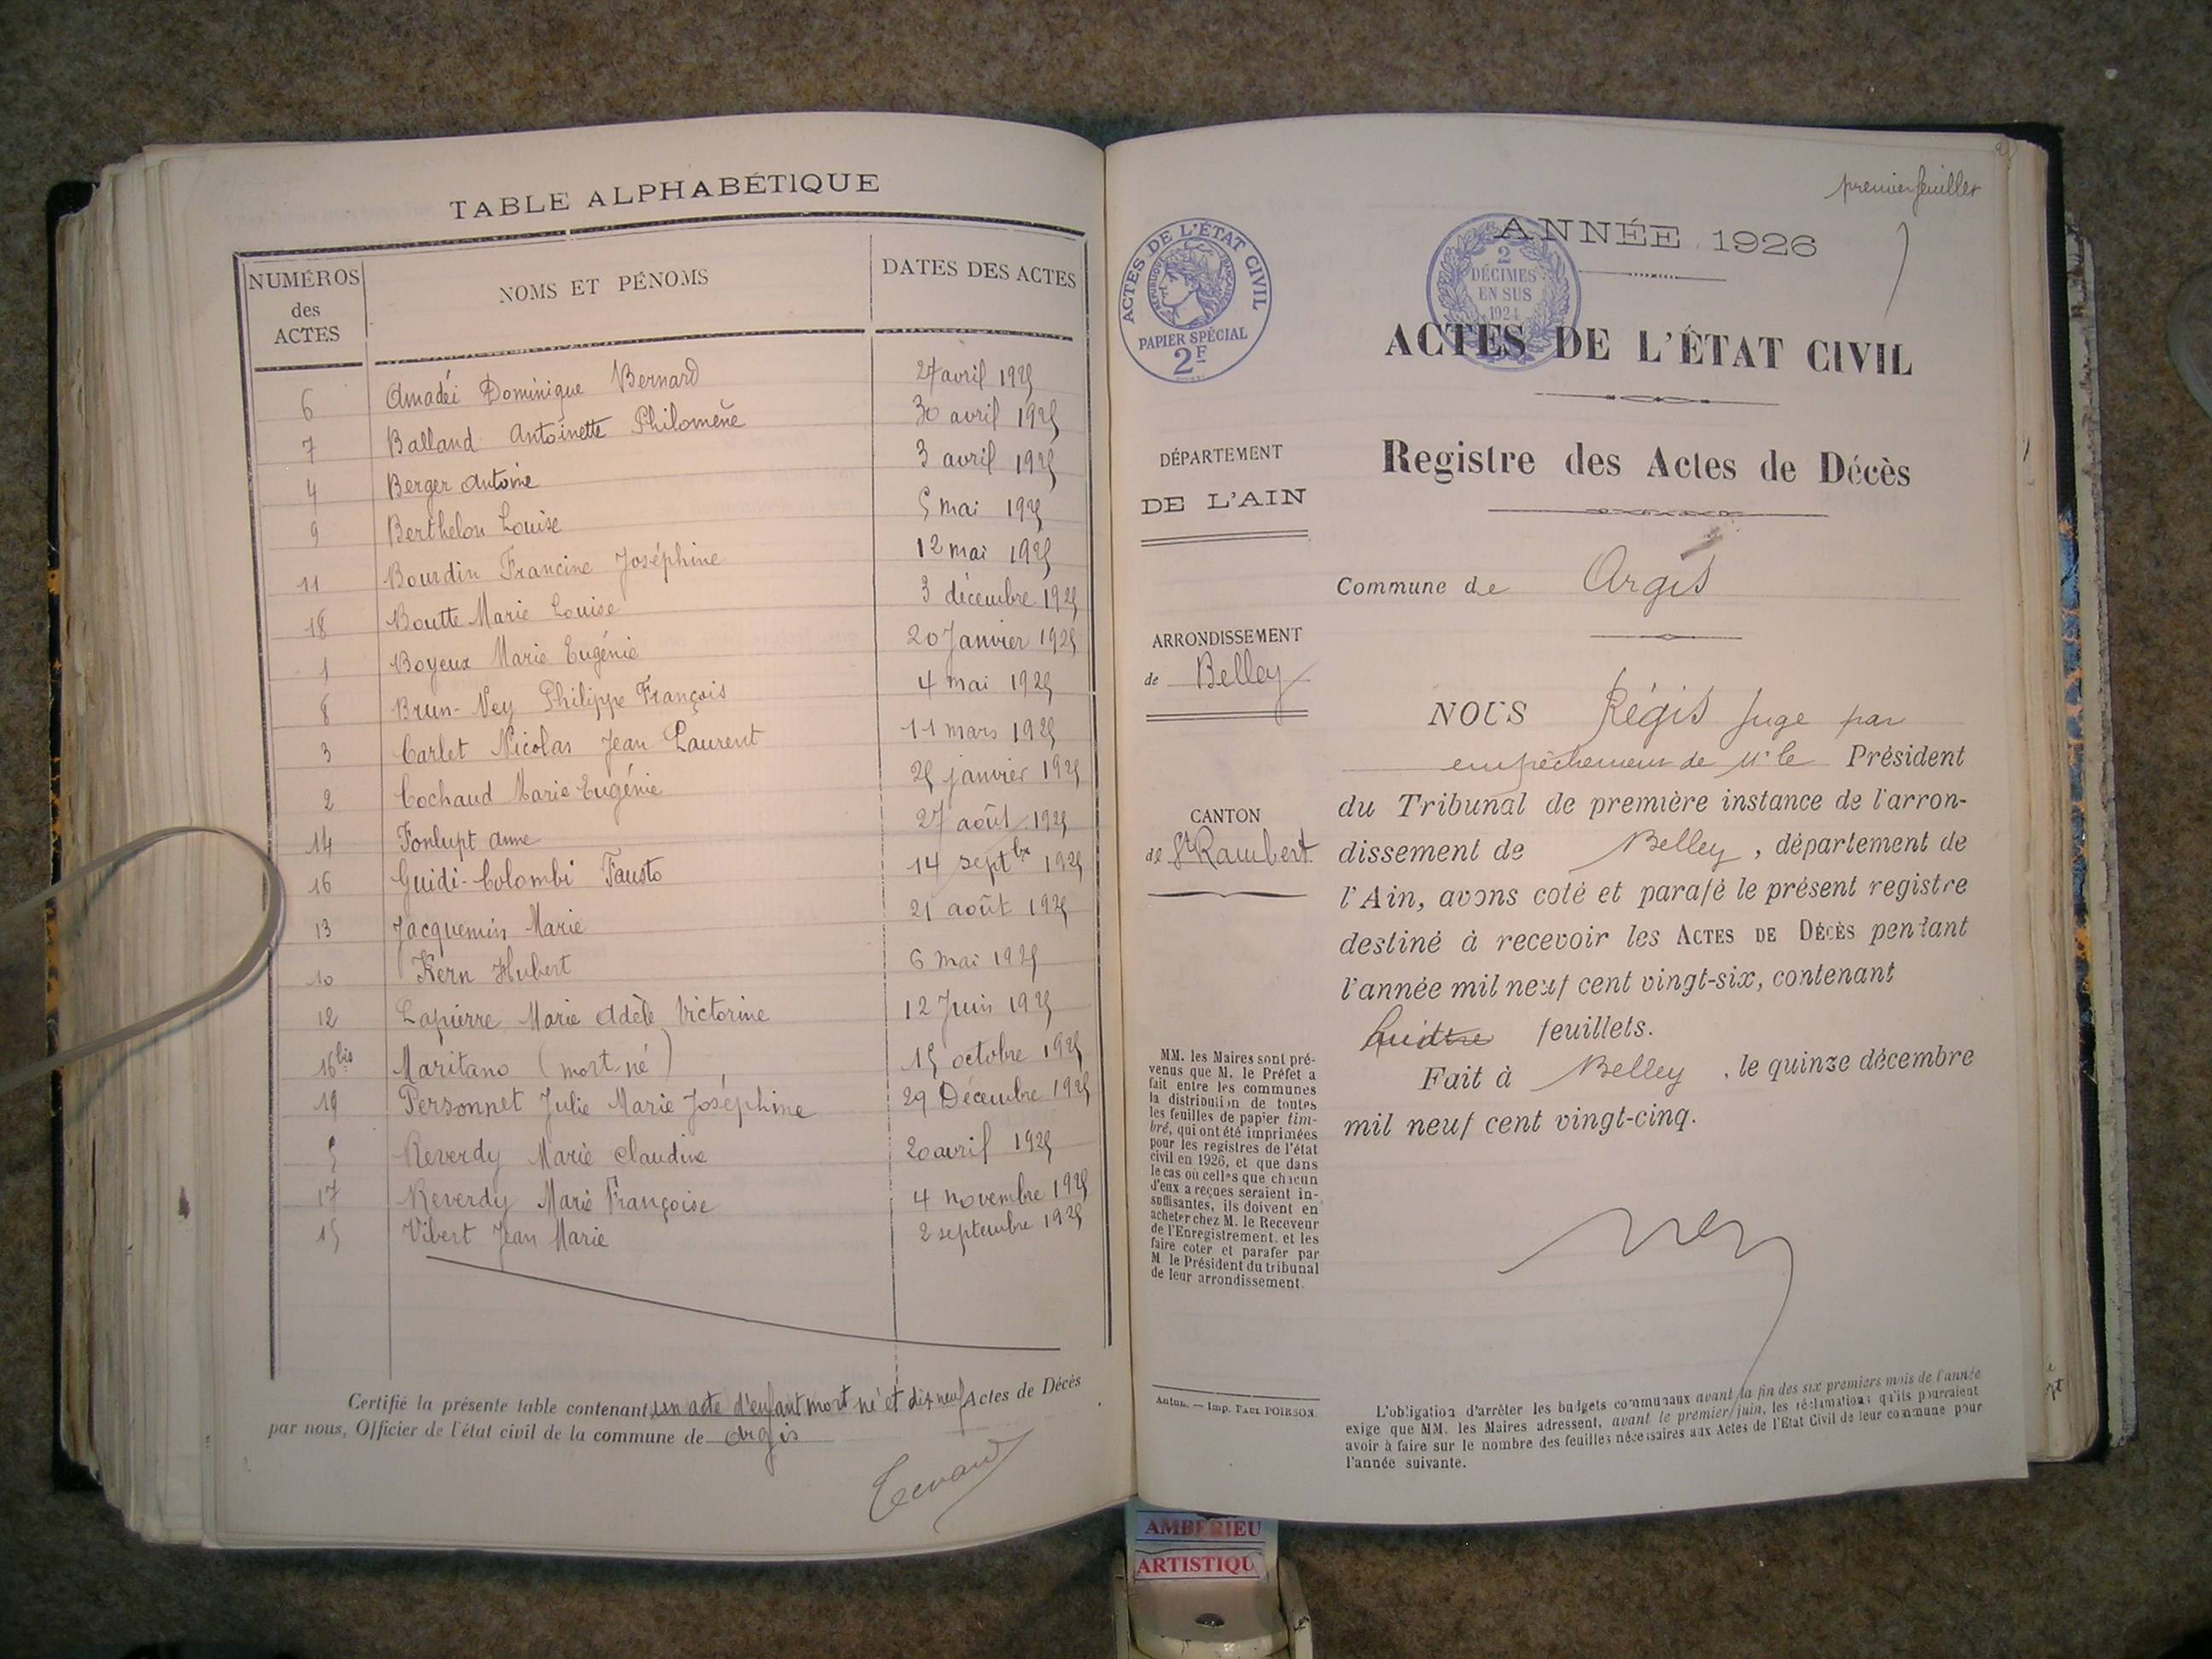 TABLE ALPHABÉTIQUE
NUMÉROS des ACTES
NOMS ET PÉNOMS
DATES DES ACTES
6 Amadéi Dominique Bernard 27 avril 1925
7 Balland Antoinette Philomène 30 avril 1925
4 Berger Antoine 3 avril 1925
9 Berthelon Louise 5 mai 1925
11 Bourdin Francine Joséphine 12 mai 1925
18 Boutte Marie Louise 3 décembre 1925
1 Boyeux Marie Eugénie 20 Janvier 1925
8 Brun-Ney Philippe François 4 mai 1925
3 Carlet Nicolas Jean Laurent 11 mars 1925
2 Cochaud Marie Eugénie 25 janvier 1925
14 Fonlupt Anne 27 août 1925
16 Guidi-Colombi Fausto 14 septbre 1925
13 Jacquemin Marie 21 août 1925
10 Kern Hubert 6 mai 1925
12 Lapierre Marie Adèle Victorine 12 Juin 1925
16bis Maritano (mort né) 15 octobre 1925
19 Personnet Julie Marie Joséphine 29 Décembre 1925
5 Reverdy Marie Claudine 20 avril 1925
17 Reverdy Marie Françoise 4 novembre 1925
15 Vibert Jean Marie 2 septembre 1925
Certifié la présente table contenant un acte d'enfant mort né et dix neuf Actes de Décès
par nous, Officier de l'état civil de la commune de Argis
premier feuillet
ACTES DE L'ÉTAT CIVIL
RÉPUBLIQUE FRANÇAISE
PAPIER SPÉCIAL
2F
2
DÉCIMES
EN SUS
1924
ANNÉE 1926
ACTES DE L'ÉTAT CIVIL
Registre des Actes de Décès
Commune de Argis
DÉPARTEMENT
DE L'AIN
ARRONDISSEMENT
de Belley
CANTON
de St Rambert
NOUS Régis Juge par
empêchement de Mr le Président
du Tribunal de première instance de l'arron-
dissement de Belley, département de
l'Ain, avons coté et parafé le présent registre
destiné à recevoir les ACTES DE DÉCÈS pendant
l'année mil neuf cent vingt-six, contenant
feuillets.
Fait à Belley, le quinze décembre
mil neuf cent vingt-cinq.
MM. les Maires sont pré-
venus que M. le Préfet a
fait entre les communes
la distribution de toutes
les feuilles de papier tim-
bré, qui ont été imprimées
pour les registres de l'état
civil en 1926, et que dans
le cas où celles que chacun
d'eux a reçues seraient in-
suffisantes, ils doivent en
acheter chez M. le Receveur
de l'Enregistrement, et les
faire coter et parafer par
M. le Président du tribunal
de leur arrondissement.
Autun. — Imp. PAUL POIRSON.
L'obligation d'arrêter les budgets communaux avant la fin des six premiers mois de l'année
exige que MM. les Maires adressent, avant le premier juin, les réclamations qu'ils pourraient
avoir à faire sur le nombre des feuilles nécessaires aux Actes de l'Etat Civil de leur commune pour
l'année suivante.
AMBERIEU
ARTISTIQU